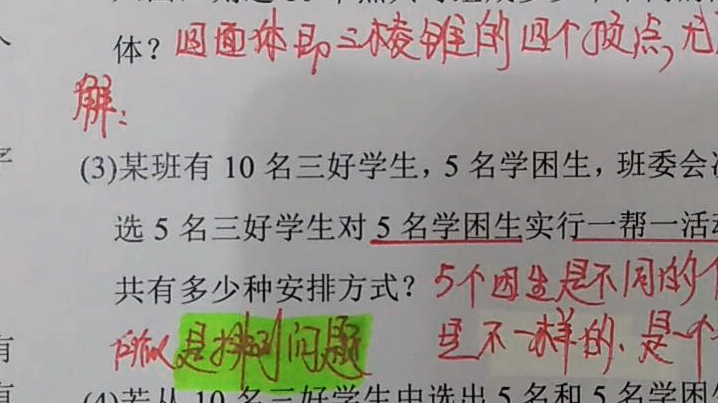 体？四面体即三棱锥的四个顶点，无
解：
(3)某班有 10 名三好学生，5 名学困生，班委会
选 5 名三好学生对 5 名学困生实行一帮一活动
共有多少种安排方式？5个困生是不同的个
所以是排列问题 是不一样的、是一个
(4)若从 10 名三好学生中选出 5 名和 5 名学困生